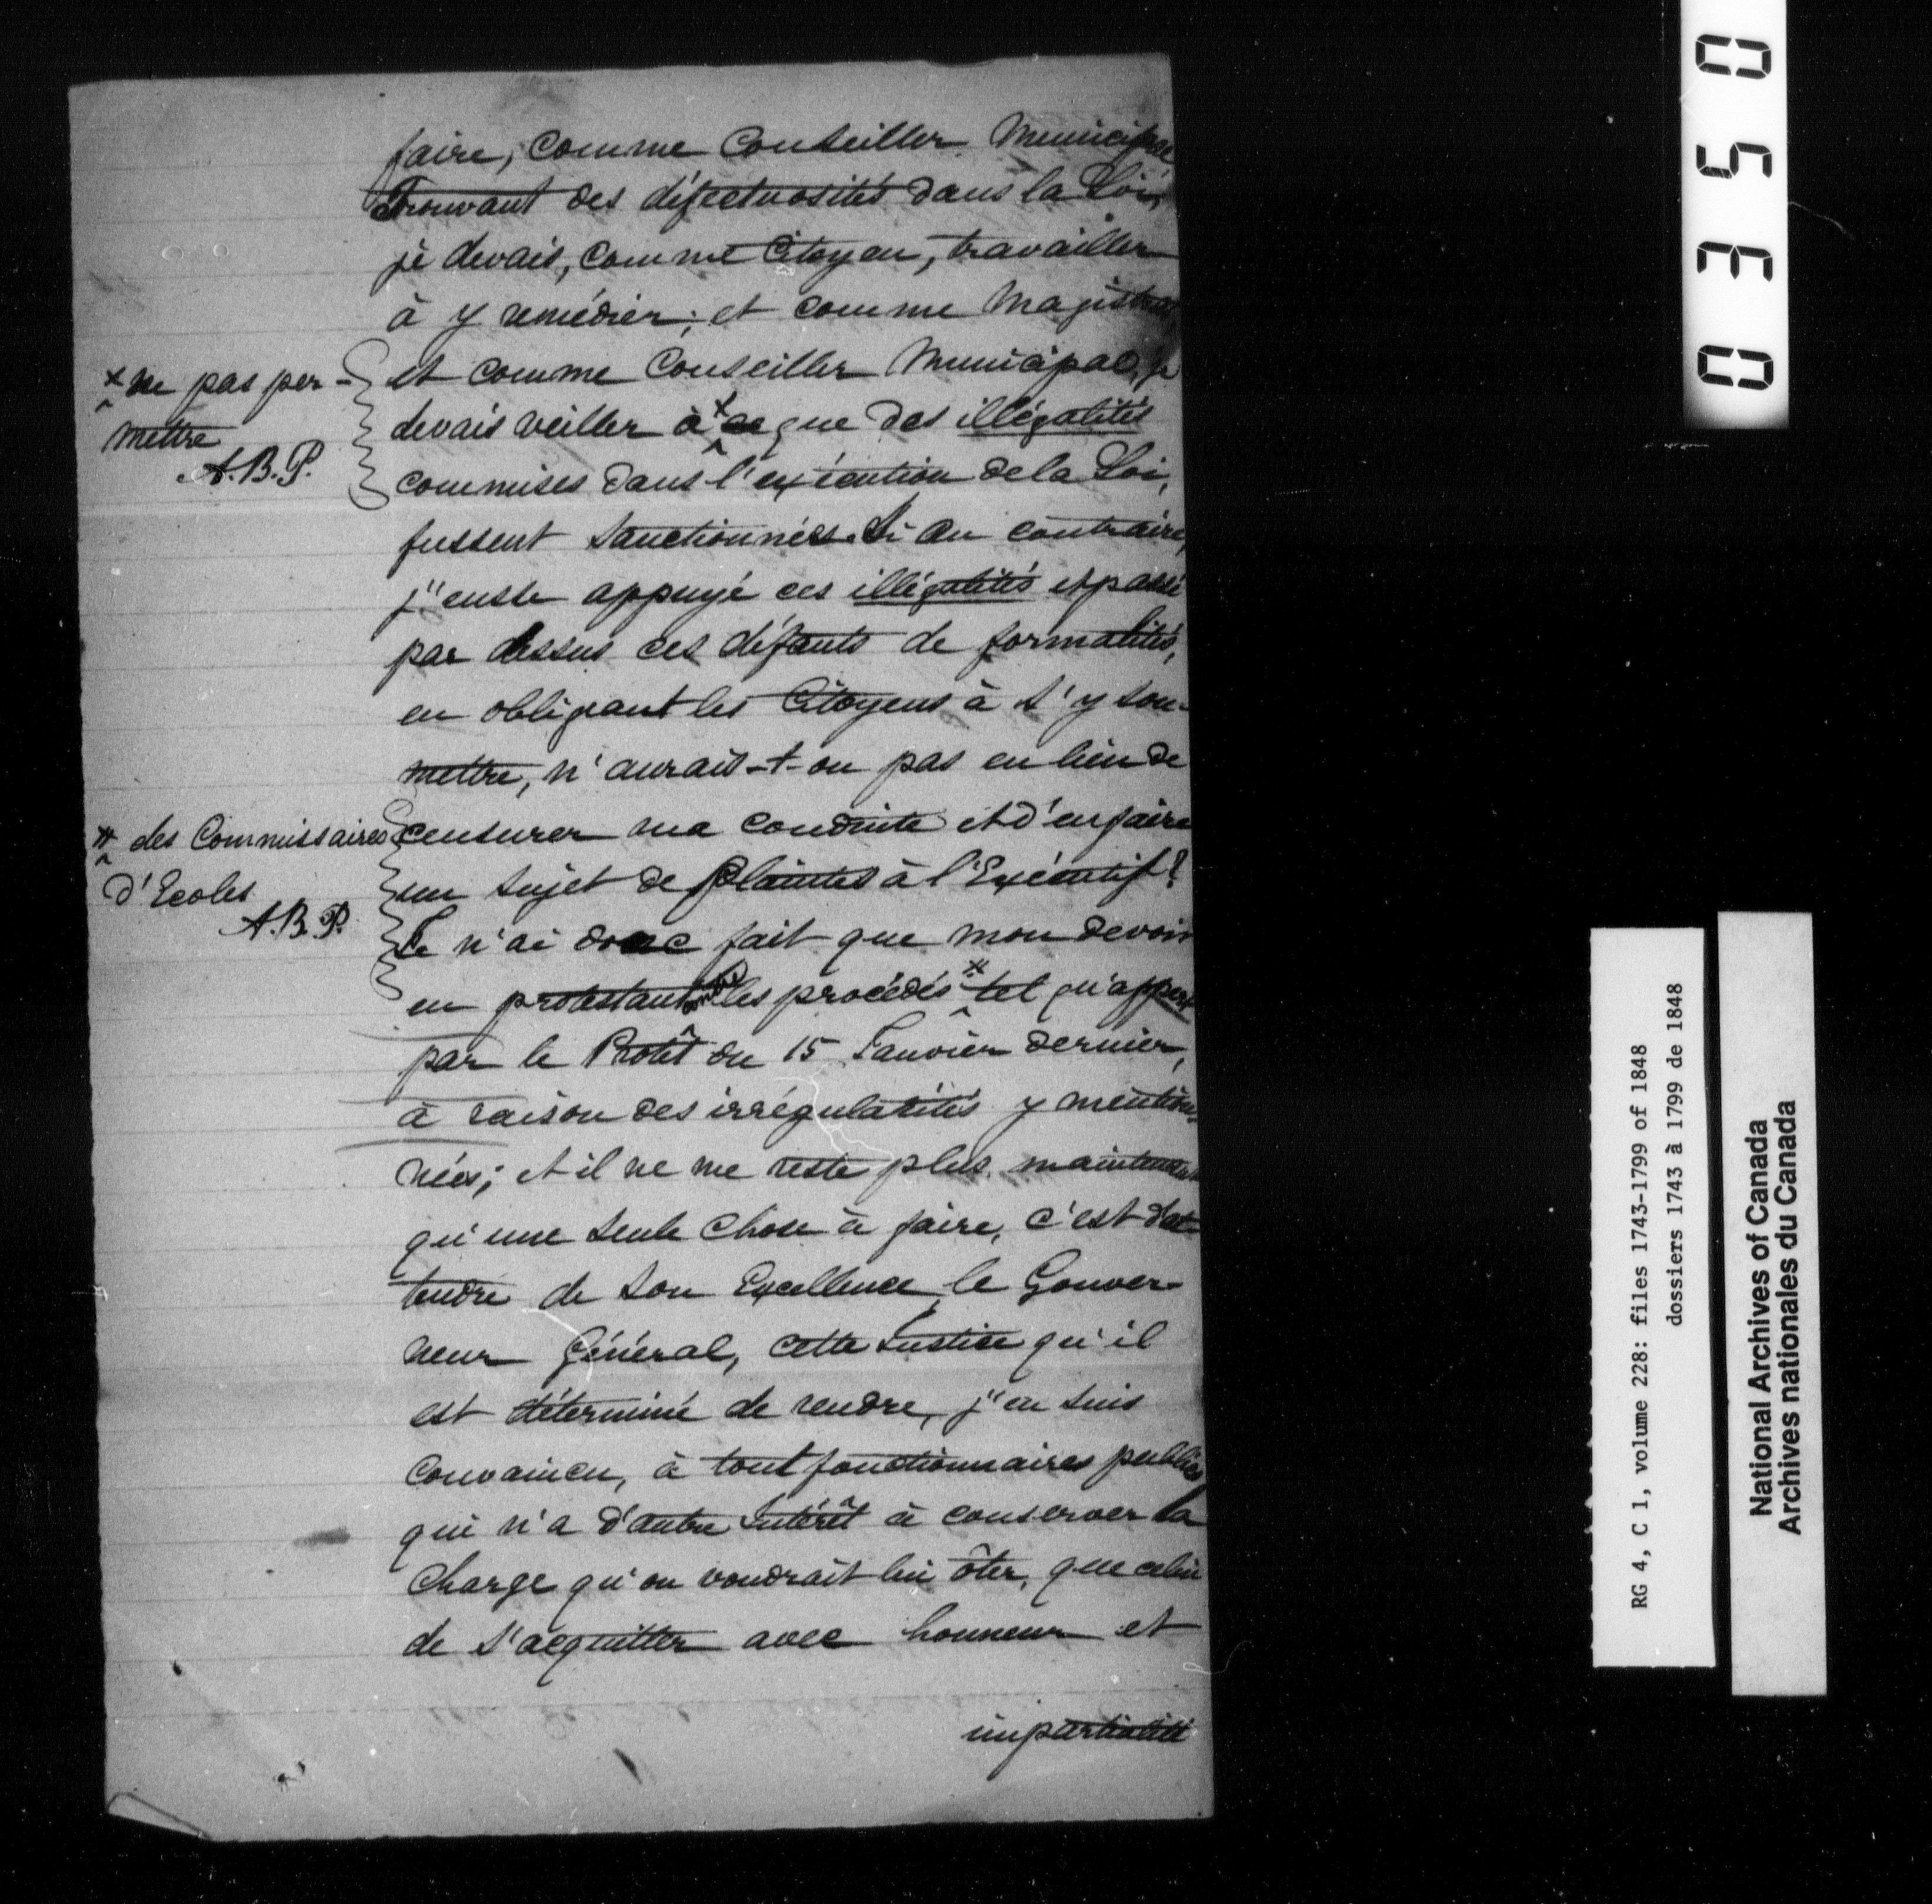 faire, comme Conseiller Municipal
Trouvant des défectuosités dans la Loi,
je devais, comme Citoyen, travailler
à y remédier; et comme Magistrat,
et comme Conseiller Municipal, je
devais veiller à x ce que des illégalités
commises dans l'exécution de la Loi,
fussent sanctionnées. Si au contraire,
j'eusse appuyé ces illégalités et passé
par dessus ces défauts de formalités,
en obligeant les Citoyens à s'y sou-
mettre, n'aurait-t-on pas eu lieu de
censurer ma conduite et d'en faire
un sujet de plaintes à l'Exécutif?
Je n'ai donc fait que mon devoir
en protestant contre les procédés # tel qu'appert
par le Protêt du 15 Janvier dernier,
à raison des irrégularités y mention-
nées; et il ne me reste plus maintenant
qu'une seule chose à faire, c'est d'at-
tendre de Son Excellence le Gouver-
neur Général, cette Justice qu'il
est déterminé de rendre, j'en suis
convaincu, à tout fonctionnaires publics
qui n'a d'autre Intérêt à conserver la
Charge qu'on voudrait lui ôter, que celui
de s'acquitter avec honneur et
impartialité
x ne pas per-
mettre
A.B.P.
# des Commissaires
d'Ecoles
A.B.P.
0350
RG 4, C 1, volume 228: files 1743-1799 of 1848
dossiers 1743 à 1799 de 1848
National Archives of Canada
Archives nationales du Canada